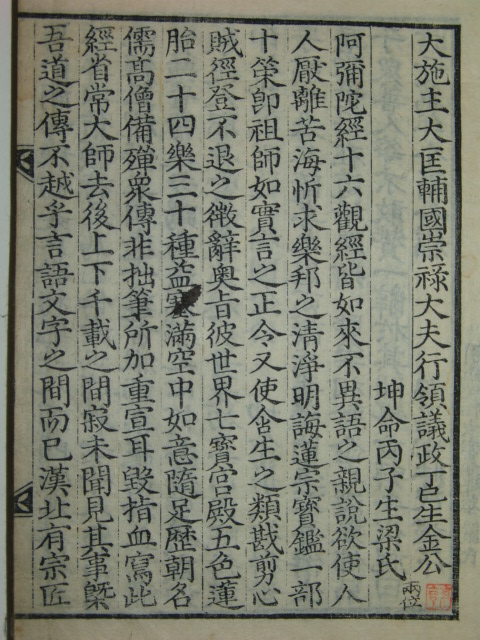 大施主大匡輔國崇祿大夫行領議政丁巳生金公
坤命丙子生梁氏
兩位
阿彌陀經十六觀經皆如來不異語之親說欲使人
人厭離苦海忻求樂邦之清淨明誨蓮宗寶鑑一部
十策卽祖師如實言之正令又使含生之類戡剪心
賊徑登不退之徴辭奧旨彼世界七寶宮殿五色蓮
胎二十四樂三十種益塞滿空中如意隨足歷朝名
儒高僧備殫衆傳非拙筆所加重宣耳毀指血寫此
經省常大師去後上下千載之間寂未聞見其事槩
吾道之傳不越乎言語文字之間而已漢北有宗匠